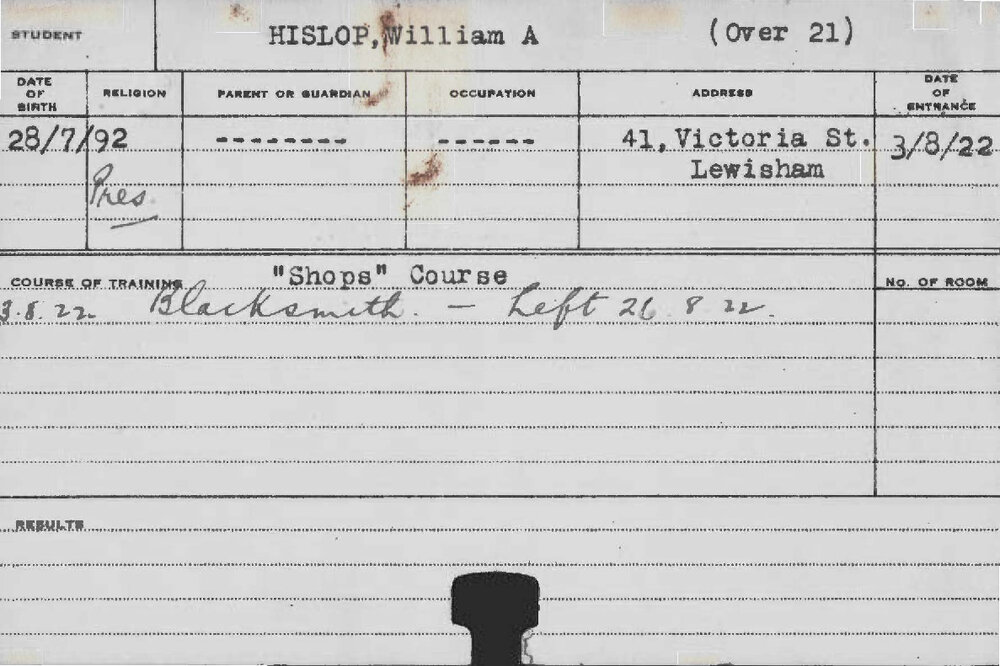 STUDENT HISLOP, William A (Over 21)
DATE OF BIRTH RELIGION PARENT OR GUARDIAN OCCUPATION ADDRESS DATE OF ENTRANCE
28/7/92 --------- ------ 41, Victoria St. 3/8/22
Lewisham
Pres.
COURSE OF TRAINING "Shops" Course No. OF ROOM
3.8.22 Blacksmith. - Left 26 8 22.
RESULTS